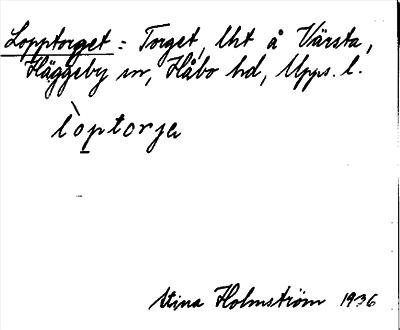 Lopptorget = Torget, lht å Värsta,
Häggeby sn, Håbo hd, Upps. l.
lòptorja
Stina Holmström 1936